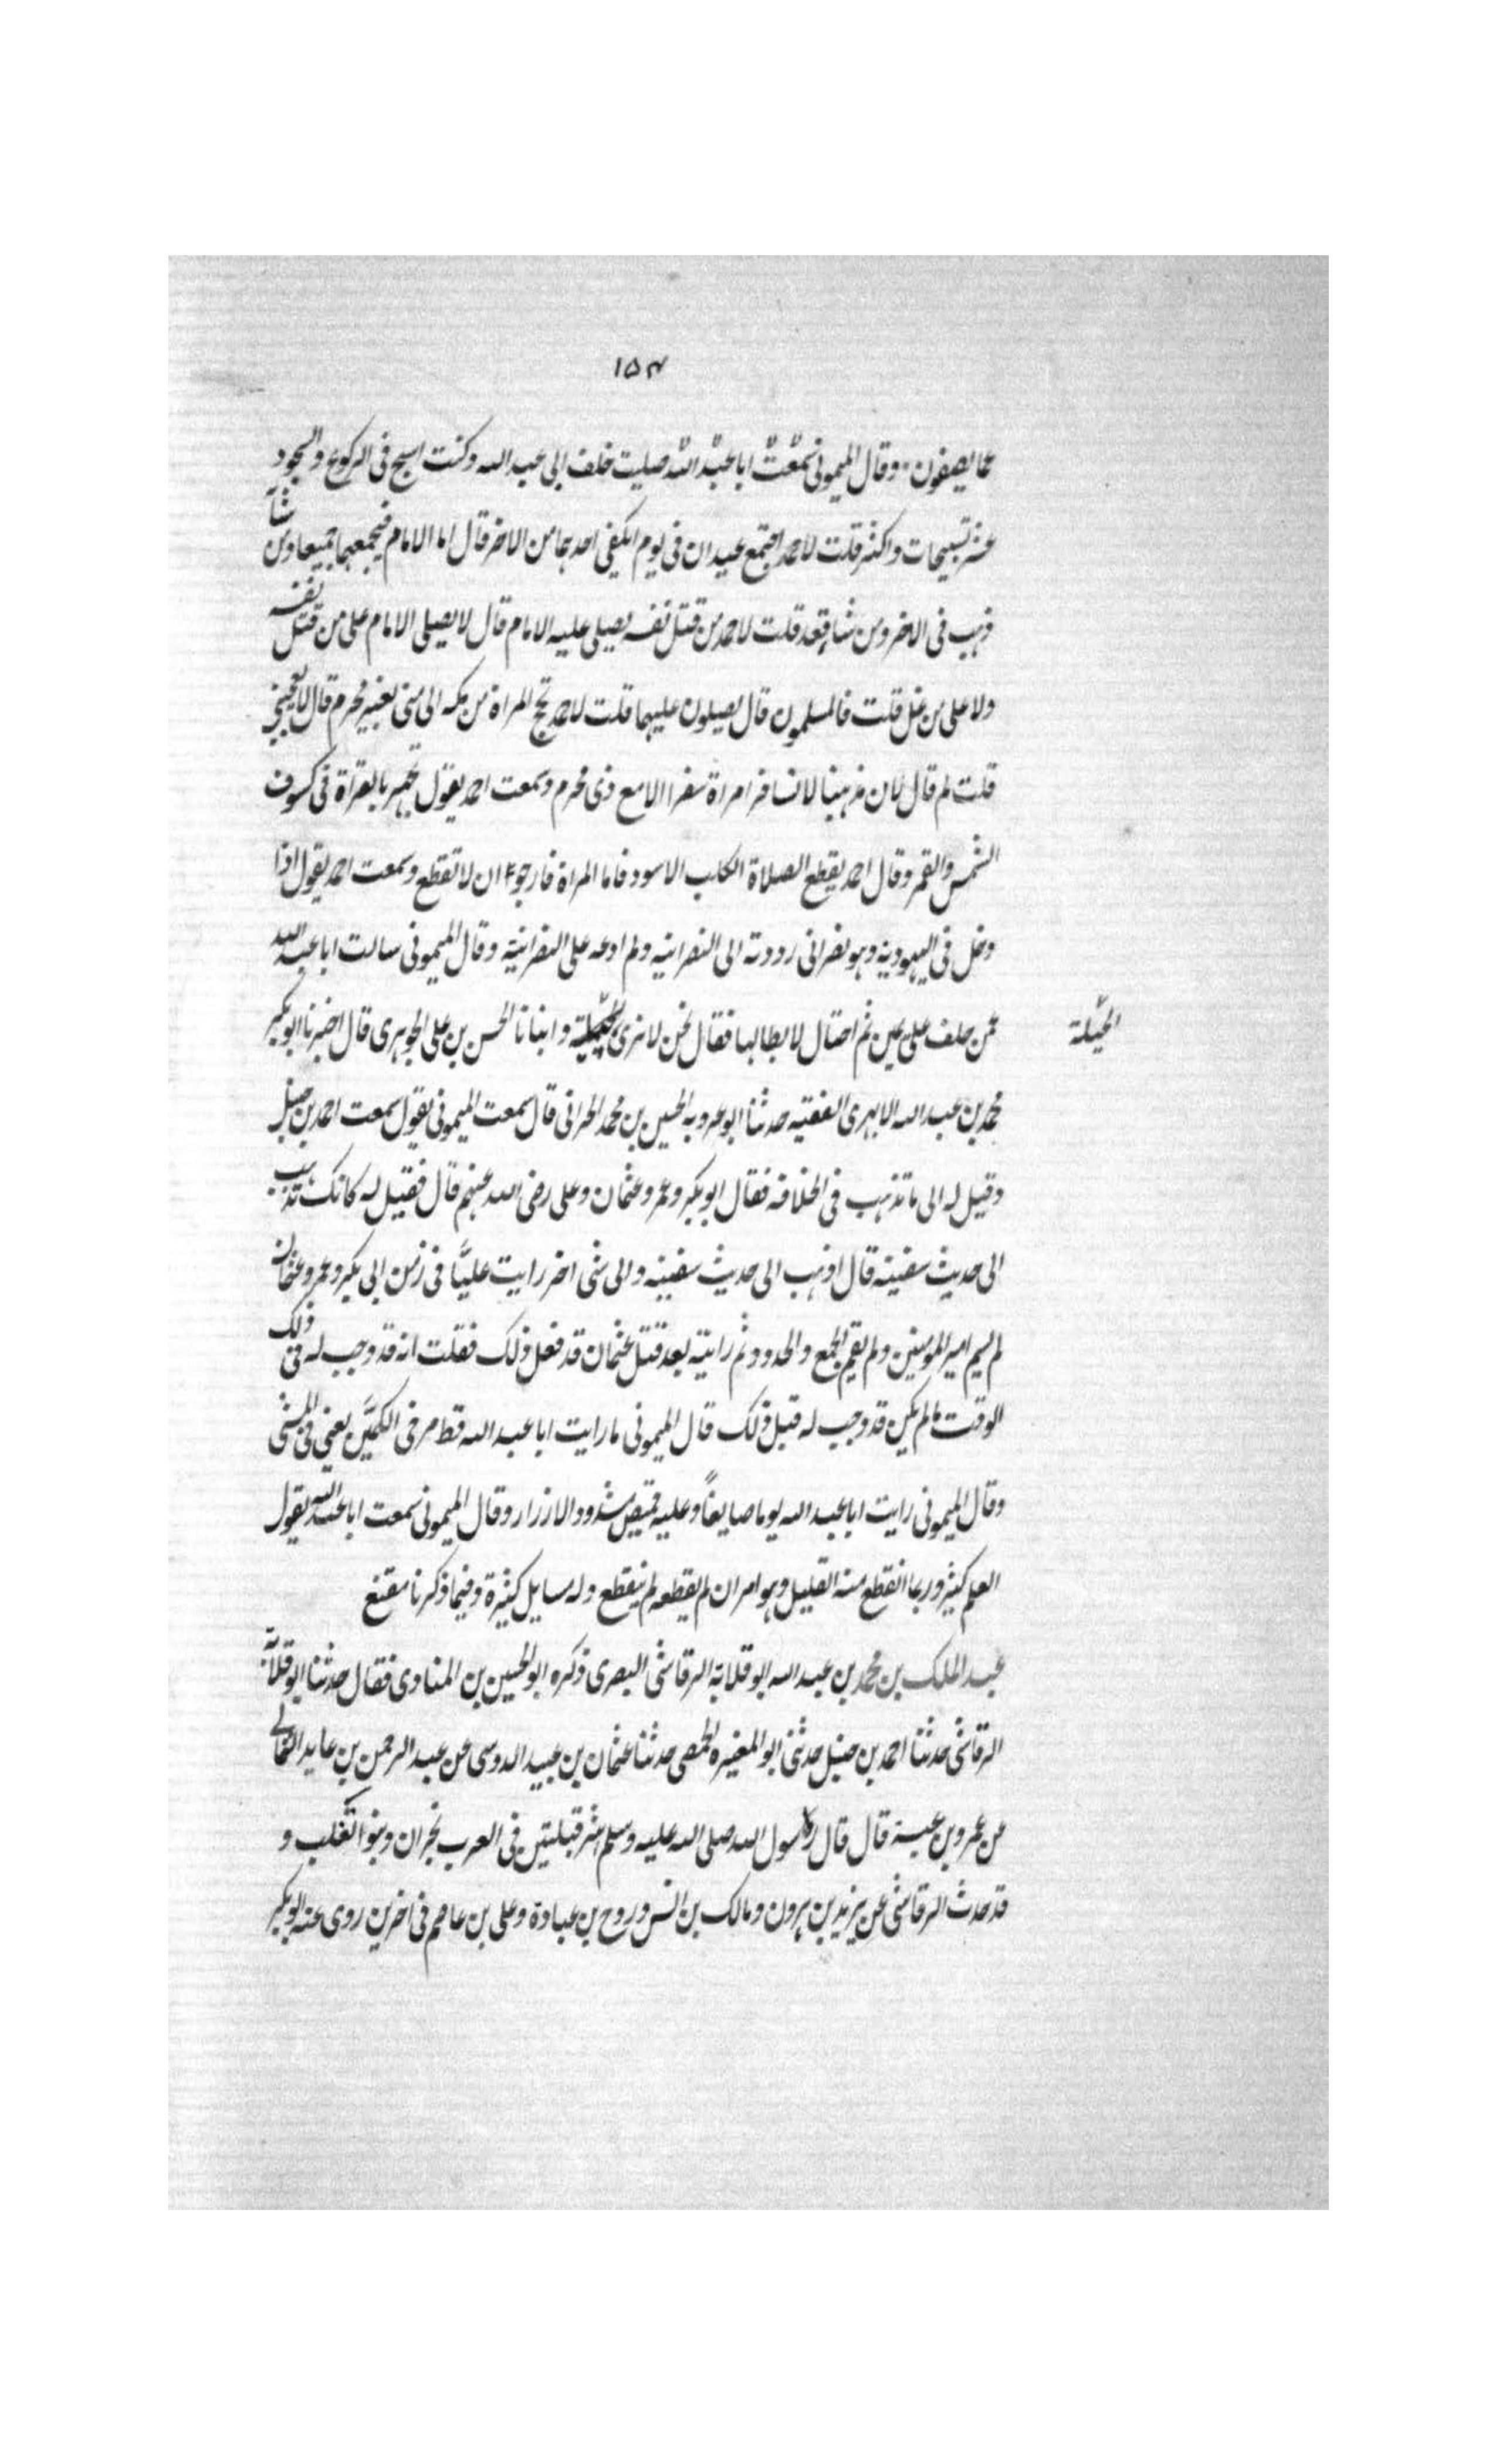 ١٥٣
عما يصفون. وقال الميمونى سمعت ابا عبد الله صليت خلف ابى عبد الله وكنت اسبح فى الركوع والسجود
عشر تسبيحات واكثر قلت لاحمد اجتمع عيدان فى يوم ايكفى احدهما من الاخر قال اما الامام فيجمعهما جميعا ومن شآ
ذهب فى الاخر ومن شاء قعد قلت لاحمد من قتل نفسه يصلى عليه الامام قال لا يصلى الامام على من قتل نفسه
ولا على من غل قلت فالمسلمون قال يصلون عليهما قلت لاحمد تحج المراة من مكه الى منى بغير محرم قال لا يعجبنى
قلت لم قال لان مذهبنا لا تسافر امراة سفرا الا مع ذى محرم وسمعت احمد يقول يجهر بالقراة فى كسوف
الشمس والقمر وقال احمد يقطع الصلاة الكلب الاسود فاما المراة فارجو ان لا تقطع وسمعت احمد يقول اذا
دخل فى اليهودية وهو نصرانى رددته الى النصرانيه ولم ادعه على النصرانيته وقال الميمونى سالت ابا عبد الله
عمن حلف على يمين ثم احتال لابطالها فقال نحن لا نرى الحيلة وانبانا الحسن بن على الجوهرى قال اخبرنا ابو بكر
الحيلة
محمد بن عبد الله الابهرى الفقيه حدثنا ابو عروبه الحسين بن محمد الحرانى قال سمعت الميمونى يقول سمعت احمد بن حنبل
وقيل له الى ما تذهب فى الخلافه فقال ابو بكر وعمر وعثمان وعلى رضى الله عنهم قال فقيل له كانك تذهب
الى حديث سفينه قال اذهب الى حديث سفينه والى شى اخر رايت عليًّا فى زمن ابى بكر وعمر وعثمان
لم يسم امير المومنين ولم يقم الجمع والحدود ثم رايته بعد قتل عثمان قد فعل ذلك فقلت انه قد وجب له فى ذلك
الوقت ما لم يكن قد وجب له قبل ذلك قال الميمونى ما رايت ابا عبد الله قط مرخى الكمين يعنى فى المشى
وقال الميمونى رايت ابا عبد الله يوما صايفاً وعليه قميص مشدود الازرار وقال الميمونى سمعت ابا عبد الله يقول
العلم كثير وربما انقطع منه القليل وهو امر ان لم يقطعه لم ينقطع وله مسايل كثيرة وفيما ذكرنا مقنع
عبد الملك بن محمد بن عبد الله ابو قلابة الرقاشى البصرى ذكره ابو الحسين بن المنادى فقال حدثنا ابو قلابة
الرقاشى حدثنا احمد بن حنبل حدثنى ابو المغيره الحمصى حدثنا عثمان بن عبيد الدوسى عن عبد الرحمن بن عايد الثمالى
عن عمرو بن عبسة قال قال رسول الله صلى الله عليه وسلم شر قبلتين فى العرب نجران وبنوا تغلب و
قد حدث الرقاشى عن يزيد بن هرون ومالك بن انس وروح بن عبادة وعلى بن عاصم فى اخرين روى عنه ابو بكر